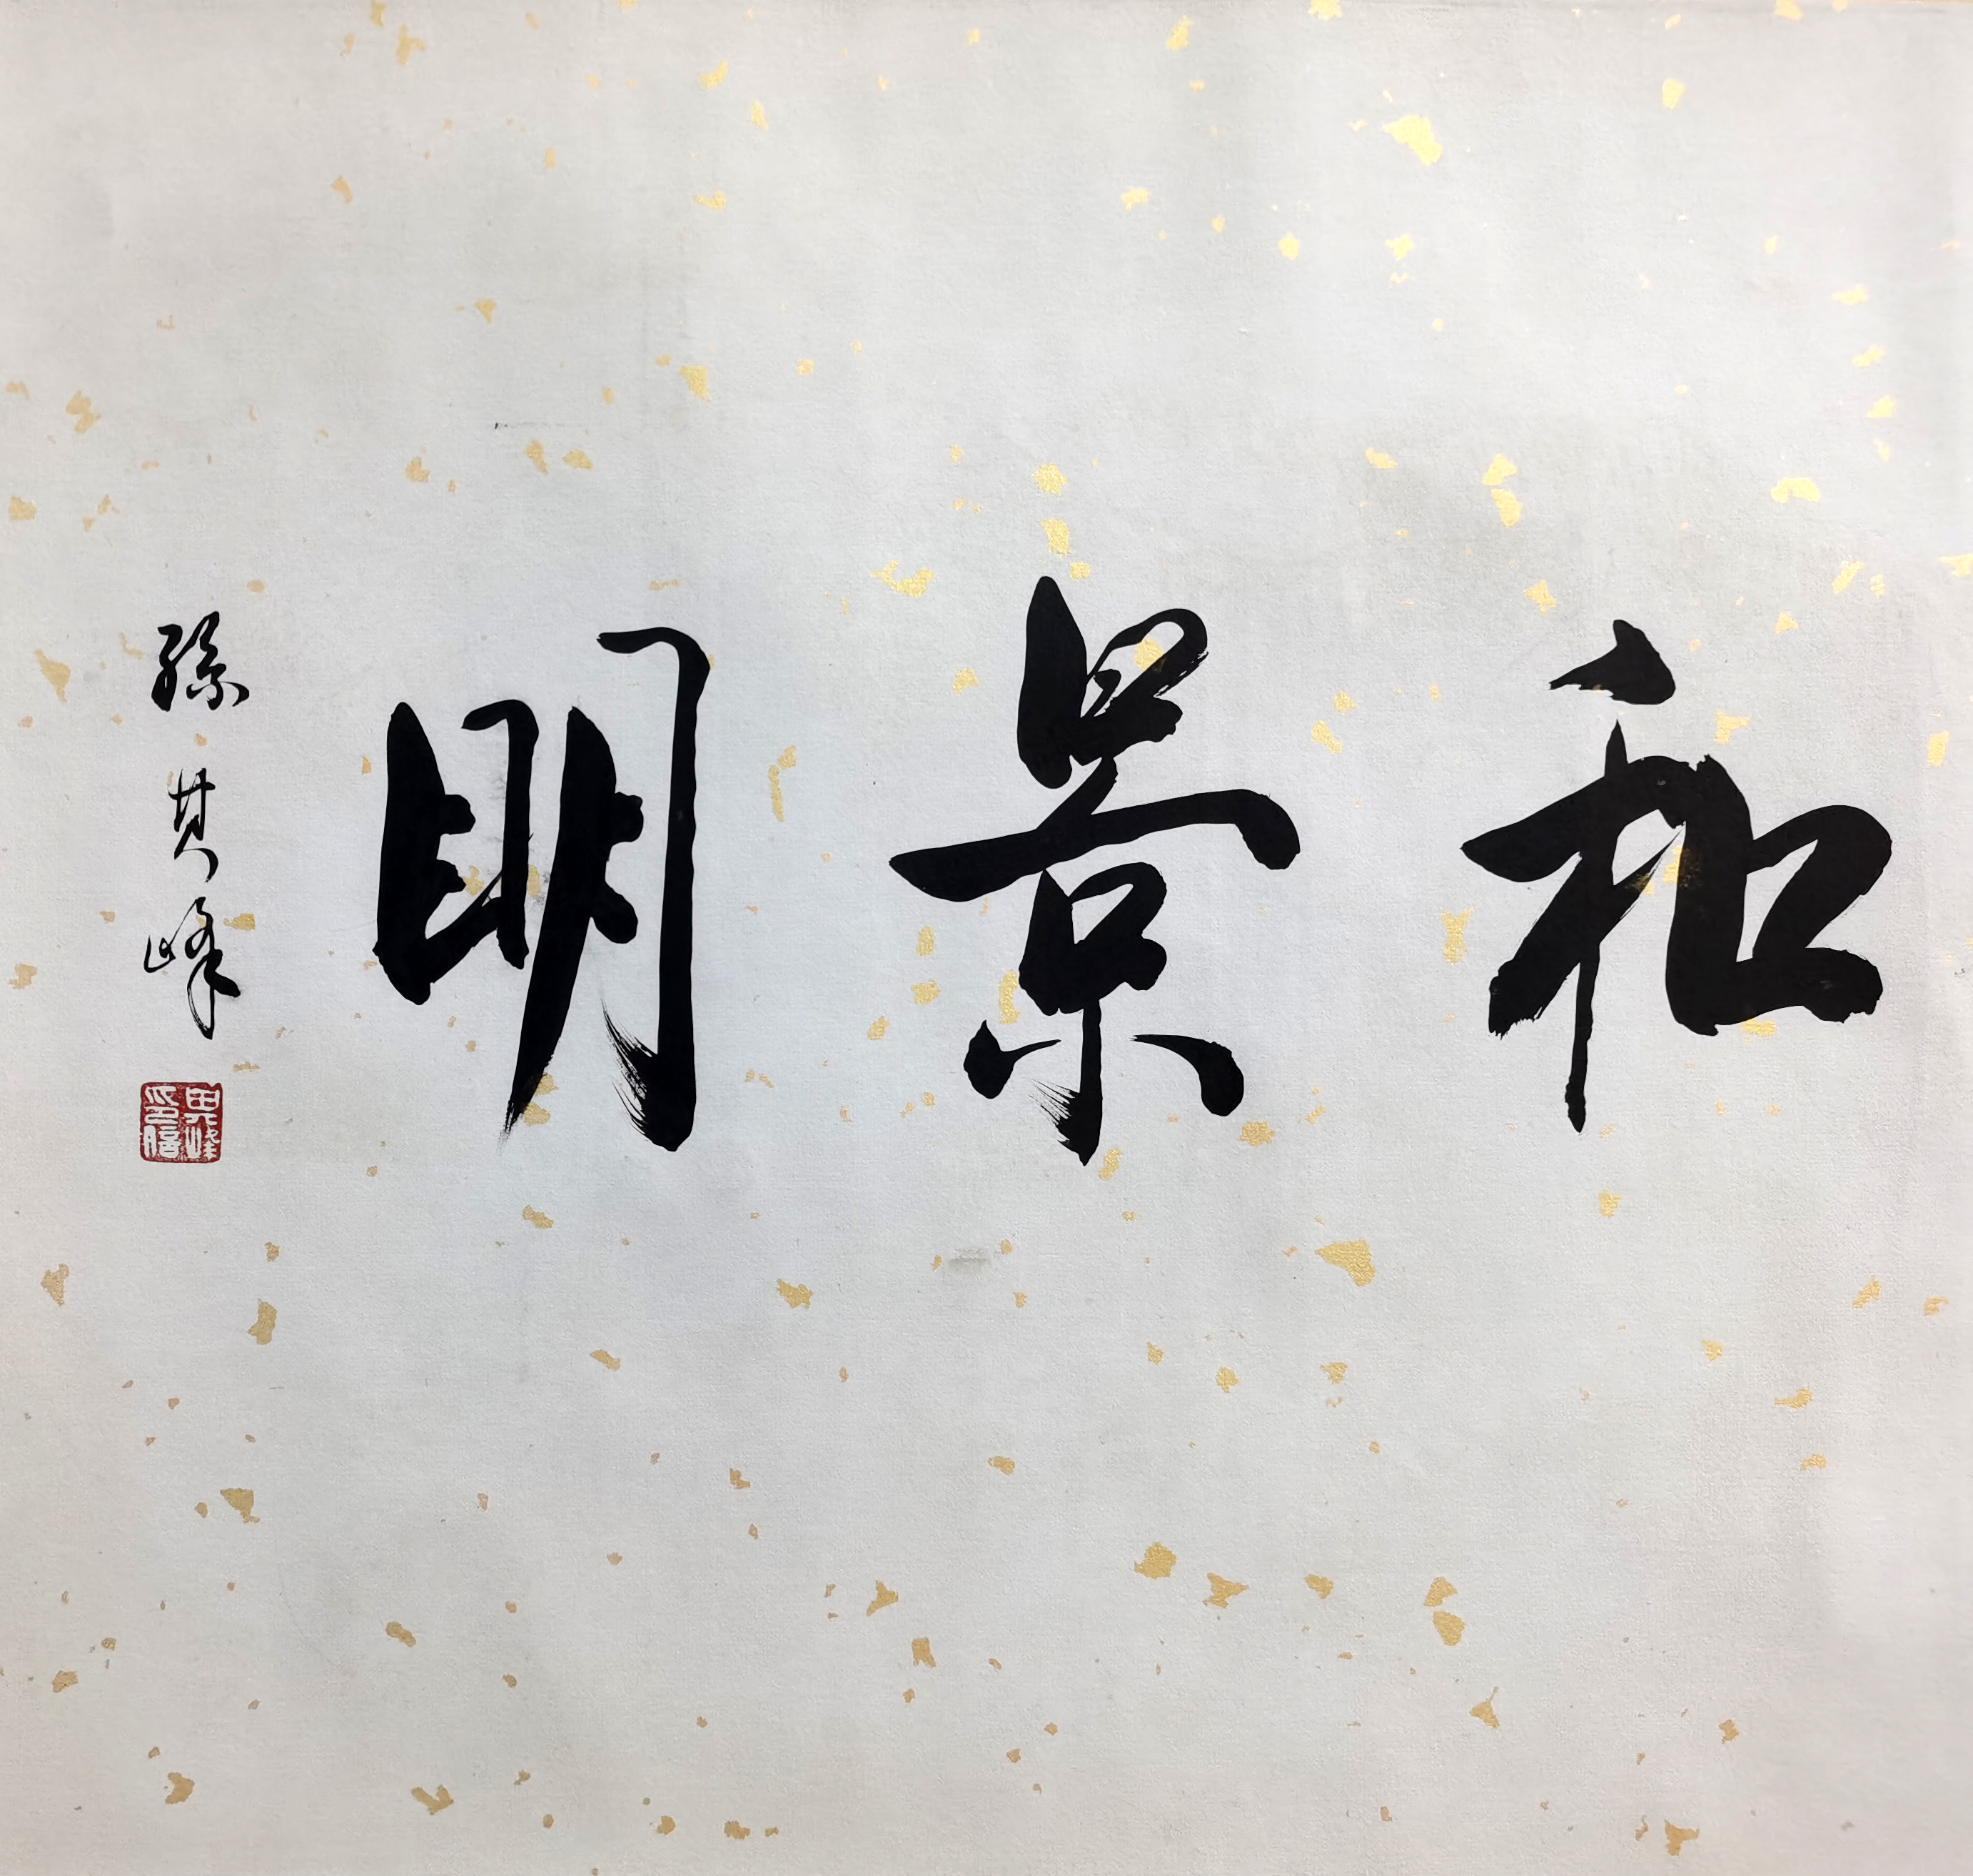 和景明
孫其峰
其峰印信